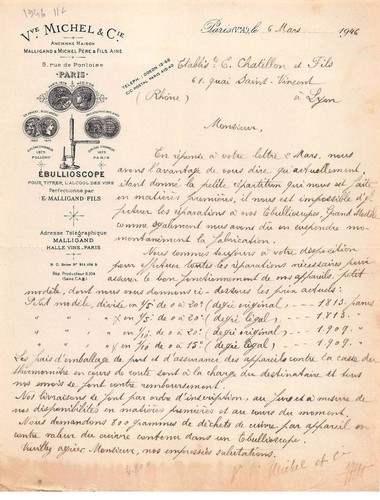 1946
Vve MICHEL & Cie
ANCIENNE MAISON
MALLIGAND & MICHEL PÈRE & FILS AINÉ
9, rue de Pontoise
PARIS
TÉLÉPH. : ODÉON 13-48
Paris (Ve), le 6 Mars 1946
Etablists C. Chatillon et Fils
61 quai Saint-Vincent
(Rhône) à Lyon
Monsieur,
ÉBULLIOSCOPE
POUR TITRER L'ALCOOL DES VINS
Perfectionné par
E. MALLIGAND FILS
Adresse Télégraphique
MALLIGAND
HALLE VINS, PARIS
En réponse à votre lettre 2 Mars, nous
avons l'avantage de vous dire, qu'actuellement,
étant donné la petite répartition qui nous est faite
en matières premières, il nous est impossible d'ef-
fectuer les réparations à nos Ebullioscopes, Grand Modèle
comme également nous avons dû en suspendre mo-
mentanément la fabrication.
Nous sommes toujours à votre disposition
pour effectuer toutes les réparations nécessaires pour
assurer le bon fonctionnement de nos appareils, petit
modèle, dont nous vous donnons ci-dessous les prix actuels:
Petit modèle, divisé en 1/5° de 0 à 20° (degré original) --- 1813. francs
" " " en 1/5° de 0 à 20° (degré légal) --- 1813. "
" " " en 1/10° de 0 à 20° (degré original) --- 1909. "
" " " en 1/10° de 0 à 15° (degré légal) --- 1909. "
Les frais d'emballage de port et d'assurance des appareils contre la casse du
thermomètre en cours de route sont à la charge du destinataire et tous
nos envois se font contre remboursement.
Nos livraisons se font par ordre d'inscription, au fur et à mesure de
nos disponibilités en matières premières et au cours du moment.
Nous demandons 800 grammes de déchets de cuivre par appareil en
contre valeur du cuivre contenu dans un Ebullioscope.
Veuillez agréer Monsieur, nos empressées salutations.
Michel et Cie